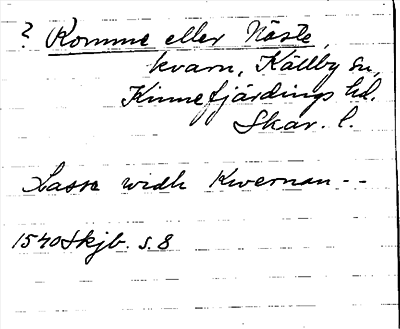 ? Komme eller Näste,
kvarn, Källby sn,
Kinnefjärdings hd.
Skar. l.
Lasse widh Kwernan --
1540 Skjb. s. 8